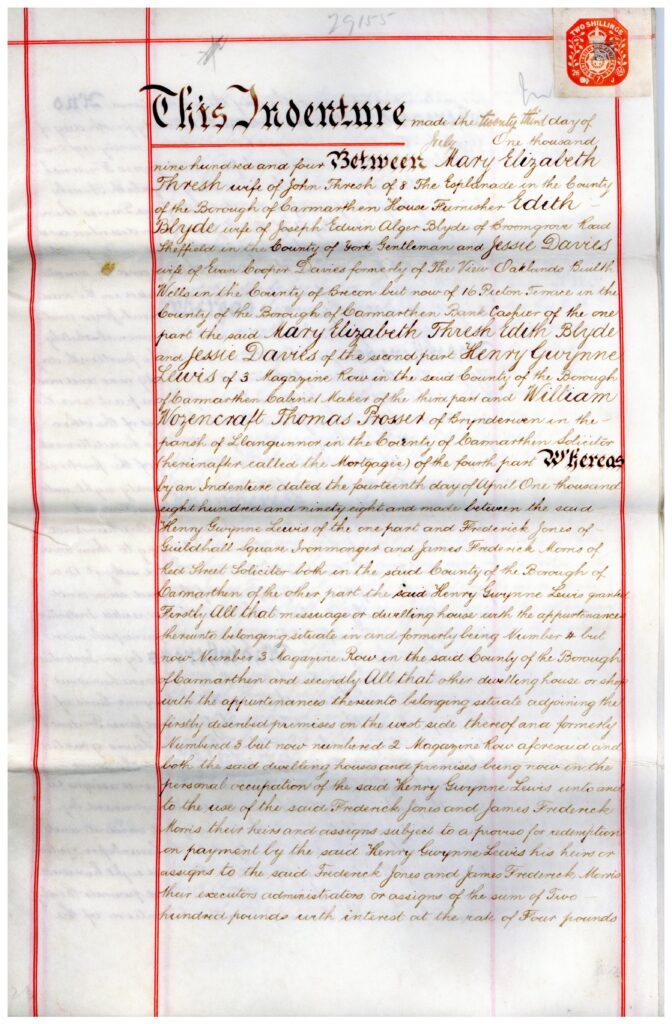 29155
TWO SHILLINGS
This Indenture made the twenty third day of
July One thousand
nine hundred and four Between Mary Elizabeth
Thresh wife of John Thresh of 8 The Esplanade in the County
of the Borough of Carmarthen House Furnisher Edith
Blyde wife of Joseph Edwin Alger Blyde of Broomgrove Road
Sheffield in the County of York Gentleman and Jessie Davies
wife of Evan Cooper Davies formerly of The View Oaklands Builth
Wells in the County of Brecon but now of 16 Picton Terrace in the
County of the Borough of Carmarthen Bank Cashier of the one
part the said Mary Elizabeth Thresh Edith Blyde
and Jessie Davies of the second part Henry Gwynne
Lewis of 3 Magazine Row in the said County of the Borough
of Carmarthen Cabinet Maker of the third part and William
Wozencraft Thomas Prosser of Brynderwen in the
parish of Llangunnor in the County of Carmarthen Solicitor
(hereinafter called the Mortgagee) of the fourth part Whereas
by an Indenture dated the fourteenth day of April One thousand
eight hundred and ninety eight and made between the said
Henry Gwynne Lewis of the one part and Frederick Jones of
Guildhall Square Ironmonger and James Frederick Morris of
Red Street Solicitor both in the said County of the Borough of
Carmarthen of the other part the said Henry Gwynne Lewis granted
Firstly All that messuage or dwelling house with the appurtenances
thereunto belonging situate in and formerly being Number 4 but
now Number 3 Magazine Row in the said County of the Borough
of Carmarthen and secondly All that other dwelling house or shop
with the appurtenances thereunto belonging situate adjoining the
firstly described premises on the west side thereof and formerly
Numbered 3 but now numbered 2 Magazine Row aforesaid and
both the said dwelling houses and premises being now in the
personal occupation of the said Henry Gwynne Lewis unto and
to the use of the said Frederick Jones and James Frederick
Morris their heirs and assigns subject to a proviso for redemption
on payment by the said Henry Gwynne Lewis his heirs or
assigns to the said Frederick Jones and James Frederick Morris
their executors administrators or assigns of the sum of Two
hundred pounds with interest at the rate of Four pounds